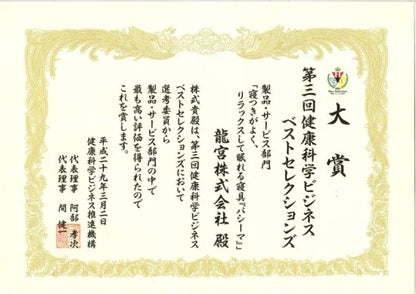 大賞
第三回健康科学ビジネス
ベストセレクションズ
製品・サービス部門
「寝つきがよく、
リラックスして眠れる寝具『パシーマ』」
龍宮株式会社 殿
株式貴殿は、第三回健康科学ビジネス
ベストセレクションズにおいて
選考委員から
製品・サービス部門の中で
最も高い評価を得られたので
これを賞します。
平成二十九年三月二日
健康科学ビジネス推進機構
代表理事 阿部 孝次
代表理事 関 健一